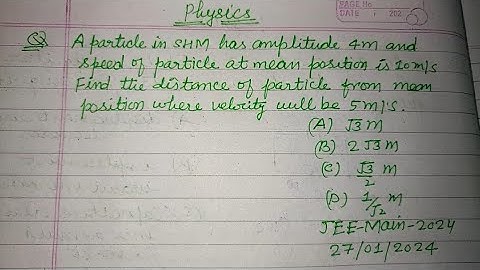 Physics
PAGE No.
DATE : 202
Q A particle in SHM has amplitude 4m and
speed of particle at mean position is 10 m/s
Find the distance of particle from mean
position where velocity will be 5 m/s.
(A) √3 m
(B) 2√3 m
(C) √3/2 m
(D) 1/√2 m
JEE-Main-2024
27/01/2024